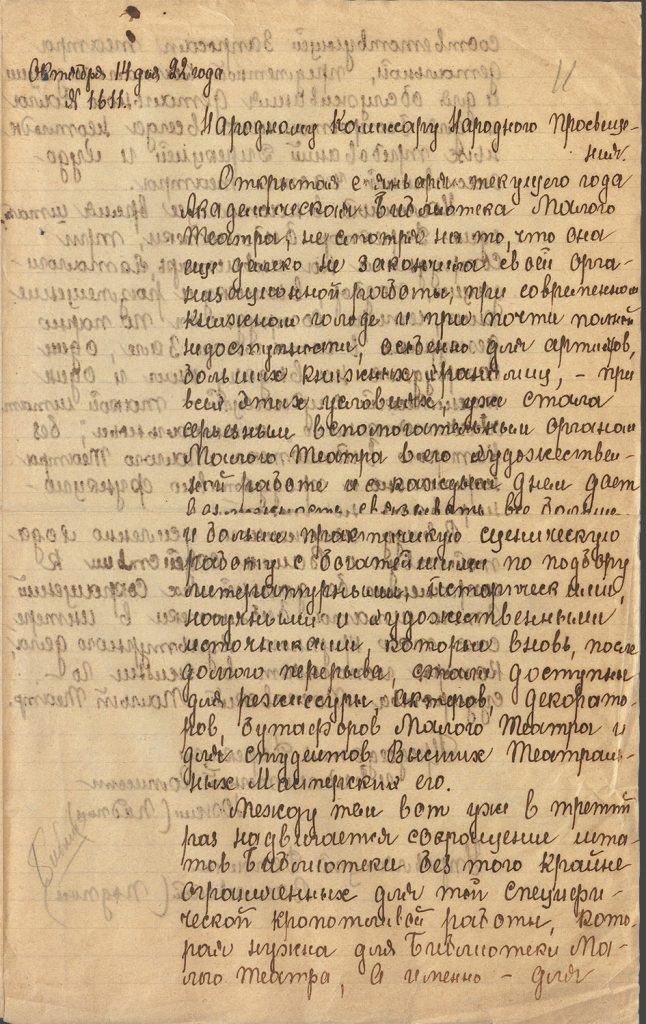 Октября 14 дня 22 года
№ 1611.
11
Народному Комиссару Народного Просвеще-
ния.
Открытая с января текущего года
Академическая Библиотека Малого
Театра, не смотря на то, что она
еще далеко не закончила своей орга-
низационной работы, при современном
книжном голоде и при почти полной
недоступности, особенно для артистов,
больших книжных хранилищ, – при
всех этих условиях, уже стала
серьезным вспомогательным органом
Малого Театра в его художествен-
ной работе и с каждым днем дает
возможность связывать все больше
и больше практическую сценическую
работу с богатейшими по подбору
литературными, историческими,
научными и художественными
источниками, которые вновь, после
долгого перерыва, стали доступны
для режиссуры, актеров, декорато-
ров, бутафоров Малого Театра и
для студентов Высших Театраль-
ных Мастерских его.
Между тем вот уже в третий
раз надвигается сокращение шта-
тов Библиотеки без того крайне
ограниченных для той специфи-
ческой кропотливой работы, кото-
рая нужна для Библиотеки Ма-
лого Театра, а именно – для